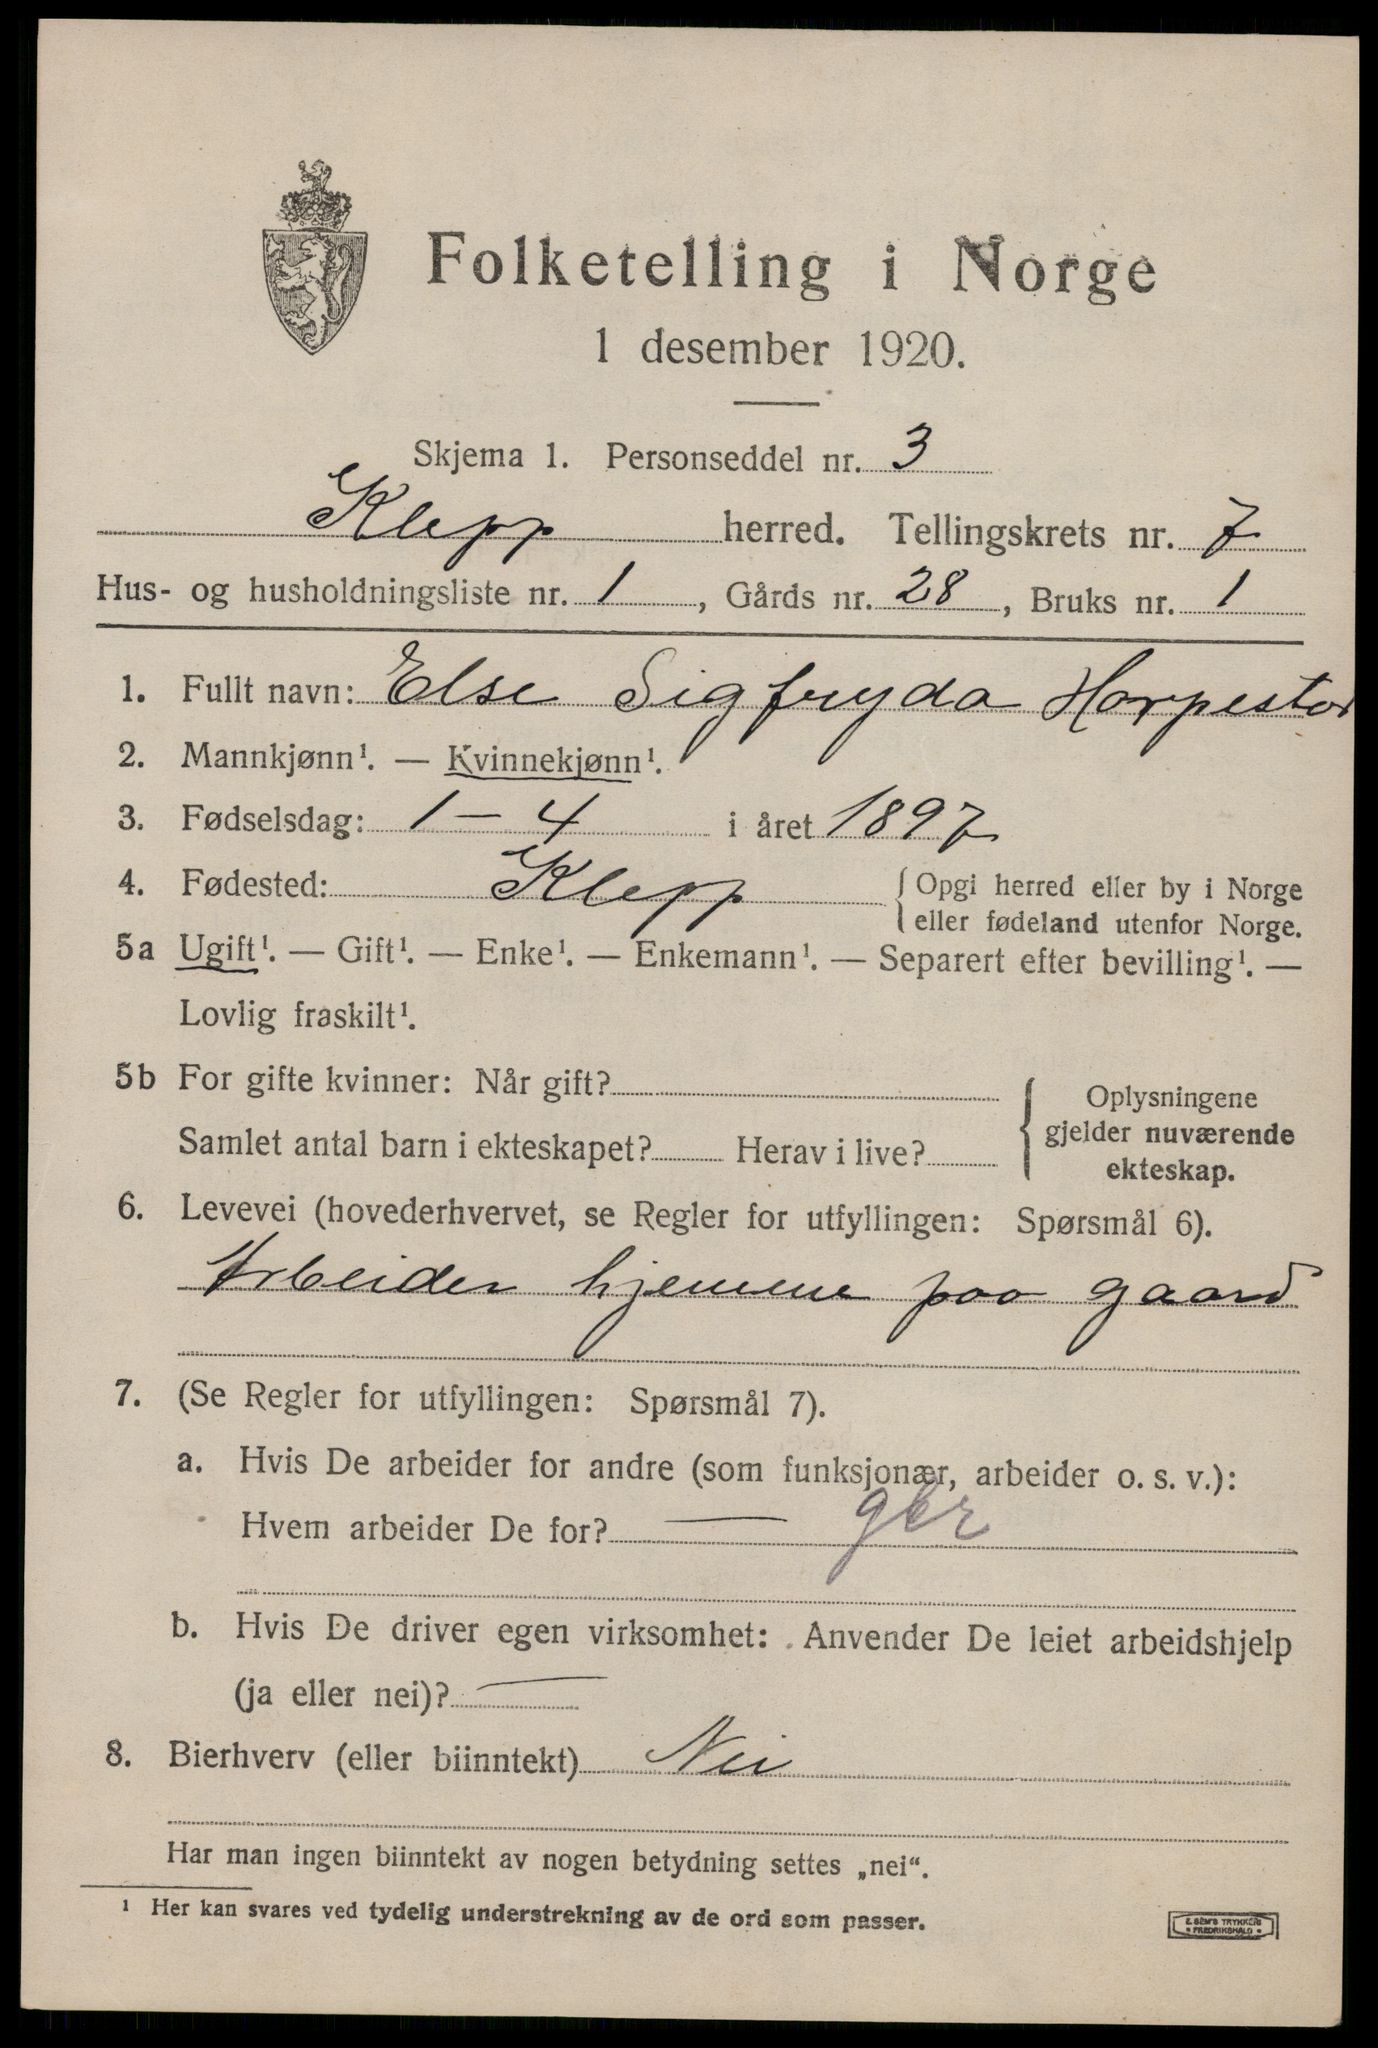 Folketelling i Norge
1 desember 1920.
Skjema 1. Personseddel nr. 3
Klepp herred. Tellingskrets nr. 7
Hus- og husholdningsliste nr. 1, Gårds nr. 28, Bruks nr. 1
1. Fullt navn: Else Sigfryda Horpestad
2. Mannkjønn¹. — Kvinnekjønn¹.
3. Fødselsdag: 1 - 4 i året 1897
4. Fødested: Klepp { Opgi herred eller by i Norge
eller fødeland utenfor Norge.
5a Ugift¹. — Gift¹. — Enke¹. — Enkemann¹. — Separert efter bevilling¹. —
Lovlig fraskilt¹.
5b For gifte kvinner: Når gift?
Samlet antal barn i ekteskapet? Herav i live?
{ Oplysningene
gjelder nuværende
ekteskap.
6. Levevei (hovederhvervet, se Regler for utfyllingen: Spørsmål 6).
Arbeider hjemme paa gaard
7. (Se Regler for utfyllingen: Spørsmål 7).
a. Hvis De arbeider for andre (som funksjonær, arbeider o. s. v.):
Hvem arbeider De for? —
b. Hvis De driver egen virksomhet: Anvender De leiet arbeidshjelp
(ja eller nei)? —
8. Bierhverv (eller biinntekt) Nei
Har man ingen biinntekt av nogen betydning settes „nei“.
¹ Her kan svares ved tydelig understrekning av de ord som passer.
E. SEM'S TRYKKERI
FREDRIKSHALD